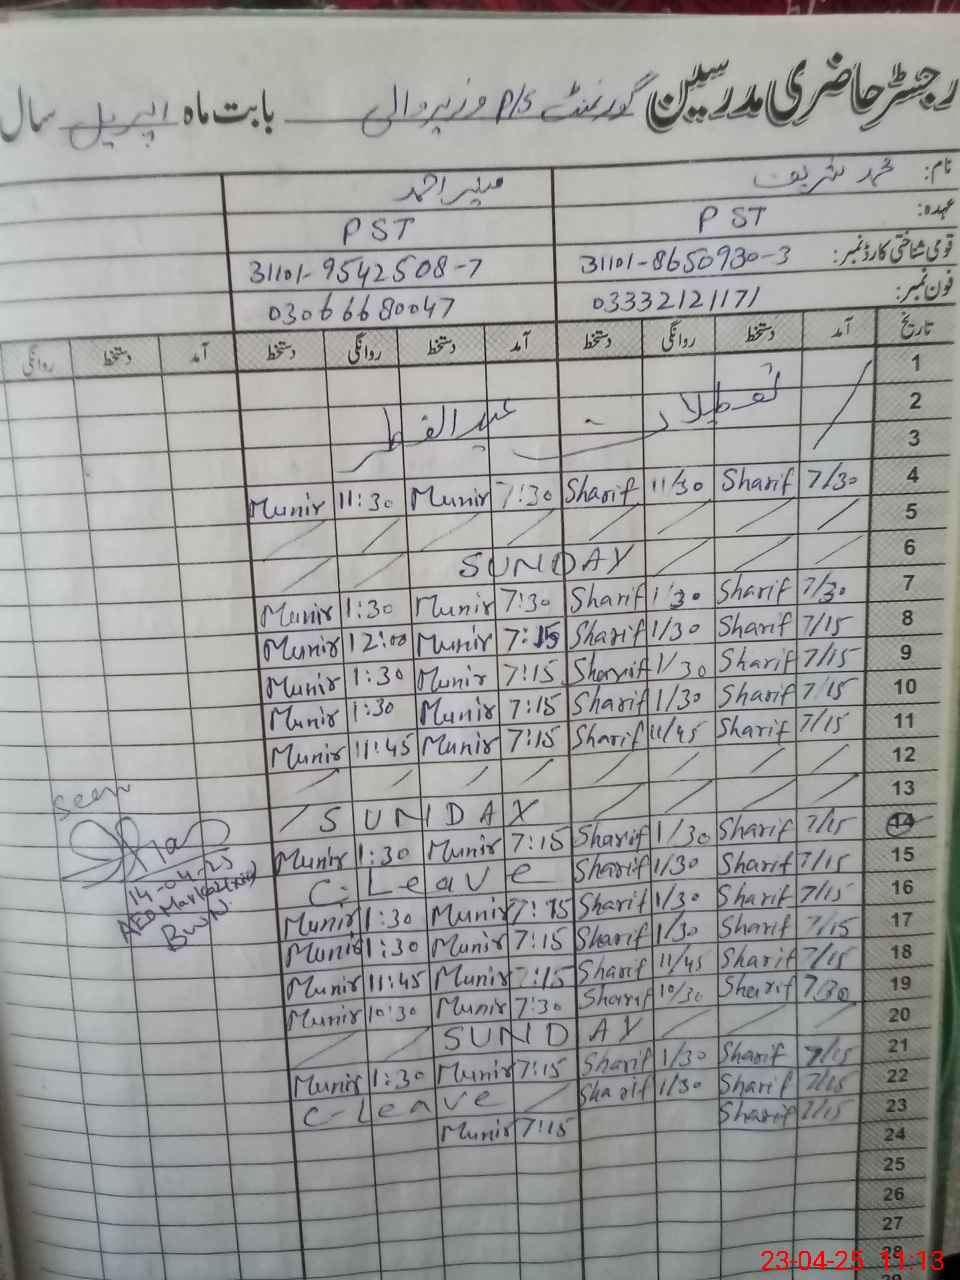 رجسٹر حاضری مدرسین گورنمنٹ P/S وزیر والی بابت ماہ اپریل سال
نام: محمد شریف منیر احمد
عہدہ: PST PST
قومی شناختی کارڈ نمبر: 31101-8650930-3 31101-9542508-7
فون نمبر: 03332121171 03066680047
تاریخ آمد دستخط روانگی دستخط آمد دستخط روانگی دستخط آمد دستخط روانگی
1
2 تعطیلات عید الفطر
3
4 7/30 Sharif 11/30 Sharif 7:30 Munir 11:30 Munir
5
6 SUNDAY
7 7/30 Sharif 1/30 Sharif 7:30 Munir 1:30 Munir
8 7/15 Sharif 1/30 Sharif 7:15 Munir 12:00 Munir
9 7/15 Sharif 1/30 Sharif 7:15 Munir 1:30 Munir
10 7/15 Sharif 1/30 Sharif 7:15 Munir 1:30 Munir
11 7/15 Sharif 11/45 Sharif 7:15 Munir 11:45 Munir
12
13 SUNDAY
14 7/15 Sharif 1/30 Sharif 7:15 Munir 1:30 Munir
15 7/15 Sharif 1/30 Sharif C. Leave
16 7/15 Sharif 1/30 Sharif 7:15 Munir 1:30 Munir
17 7/15 Sharif 1/30 Sharif 7:15 Munir 1:30 Munir
18 7/15 Sharif 11/45 Sharif 7:15 Munir 11:45 Munir
19 7/30 Sharif 10/30 Sharif 7:30 Munir 10:30 Munir
20 SUNDAY
21 7/15 Sharif 1/30 Sharif 7:15 Munir 1:30 Munir
22 7/15 Sharif 1/30 Sharif C-Leave
23 7/15 Sharif 7:15 Munir
24
25
26
27
28
Seen
14-04-25
AEO Markaz
BWN
23-04-25 11:13